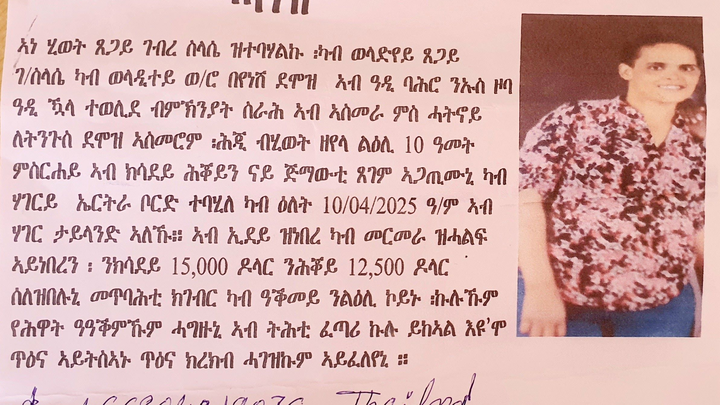 ኣነ ሂወት ጸጋይ ገብረ ስላሴ ዝተባሃልኩ ፡ካብ ወላድየይ ጸጋይ
ገ/ስላሴ ካብ ወላዲተይ ወ/ሮ በየነሽ ደሞዝ ኣብ ዓዲ ባሕሮ ንኡስ ዞባ
ዓዲ ዃላ ተወሊደ ብምኽንያት ስራሕ ኣብ ኣስመራ ምስ ሓትኖይ
ለትንጉስ ደሞዝ ኣስመሮም ፡ሕጂ ብሂወት ዘየላ ልዕሊ 10 ዓመት
ምስርሐይ ኣብ ክሳደይ ሕቖይን ናይ ጅማውቲ ጸገም ኣጋጢሙኒ ካብ
ሃገርይ ኤርትራ ቦርድ ተባሂለ ካብ ዕለት 10/04/2025 ዓ/ም ኣብ
ሃገር ታይላንድ ኣለኹ። ኣብ ኢደይ ዝነበረ ካብ መርመራ ዝሓልፍ
ኣይነበረን ፡ ንክሳደይ 15,000 ዶላር ንሕቖይ 12,500 ዶላር
ስለዝበሉኒ መጥባሕቲ ክገብር ካብ ዓቕመይ ንልዕሊ ኮይኑ ፡ኩሉኹም
የሕዋት ዓዓቕምኹም ሓግዙኒ ኣብ ትሕቲ ፈጣሪ ኩሉ ይከኣል እዩ'ሞ
ጥዕና ኣይትስኣኑ ጥዕና ክረክብ ሓገዝኩም ኣይፈለየኒ ።
Thailand